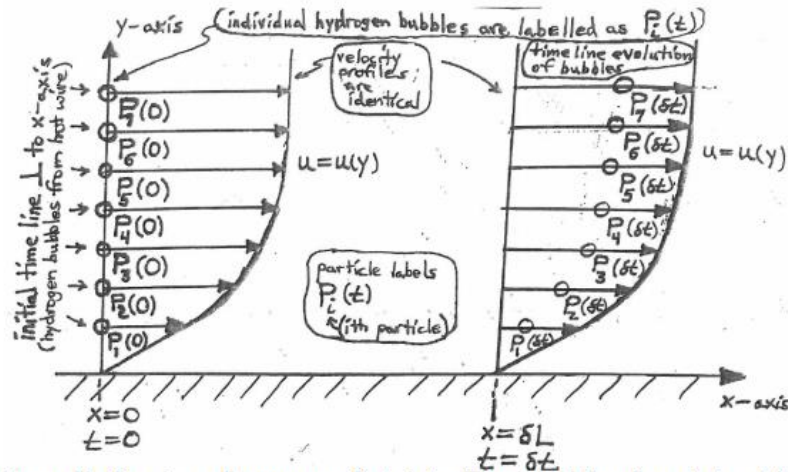 (individual hydrogen bubbles are labelled as Pᵢ(t))
y-axis
velocity
profiles
are
identical
time line evolution
of bubbles
initial time line ⊥ to x-axis
(hydrogen bubbles from hot wire)
P₇(0)
P₆(0)
P₅(0)
P₄(0)
P₃(0)
P₂(0)
P₁(0)
u=u(y)
particle labels
Pᵢ(t)
(ith particle)
P₇(δt)
P₆(δt)
P₅(δt)
P₄(δt)
P₃(δt)
P₂(δt)
P₁(δt)
u=u(y)
x-axis
x=0
t=0
x=δL
t=δt